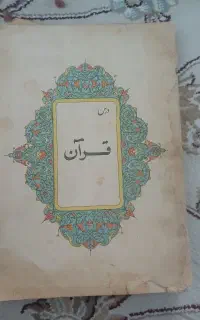 درس
قرآن